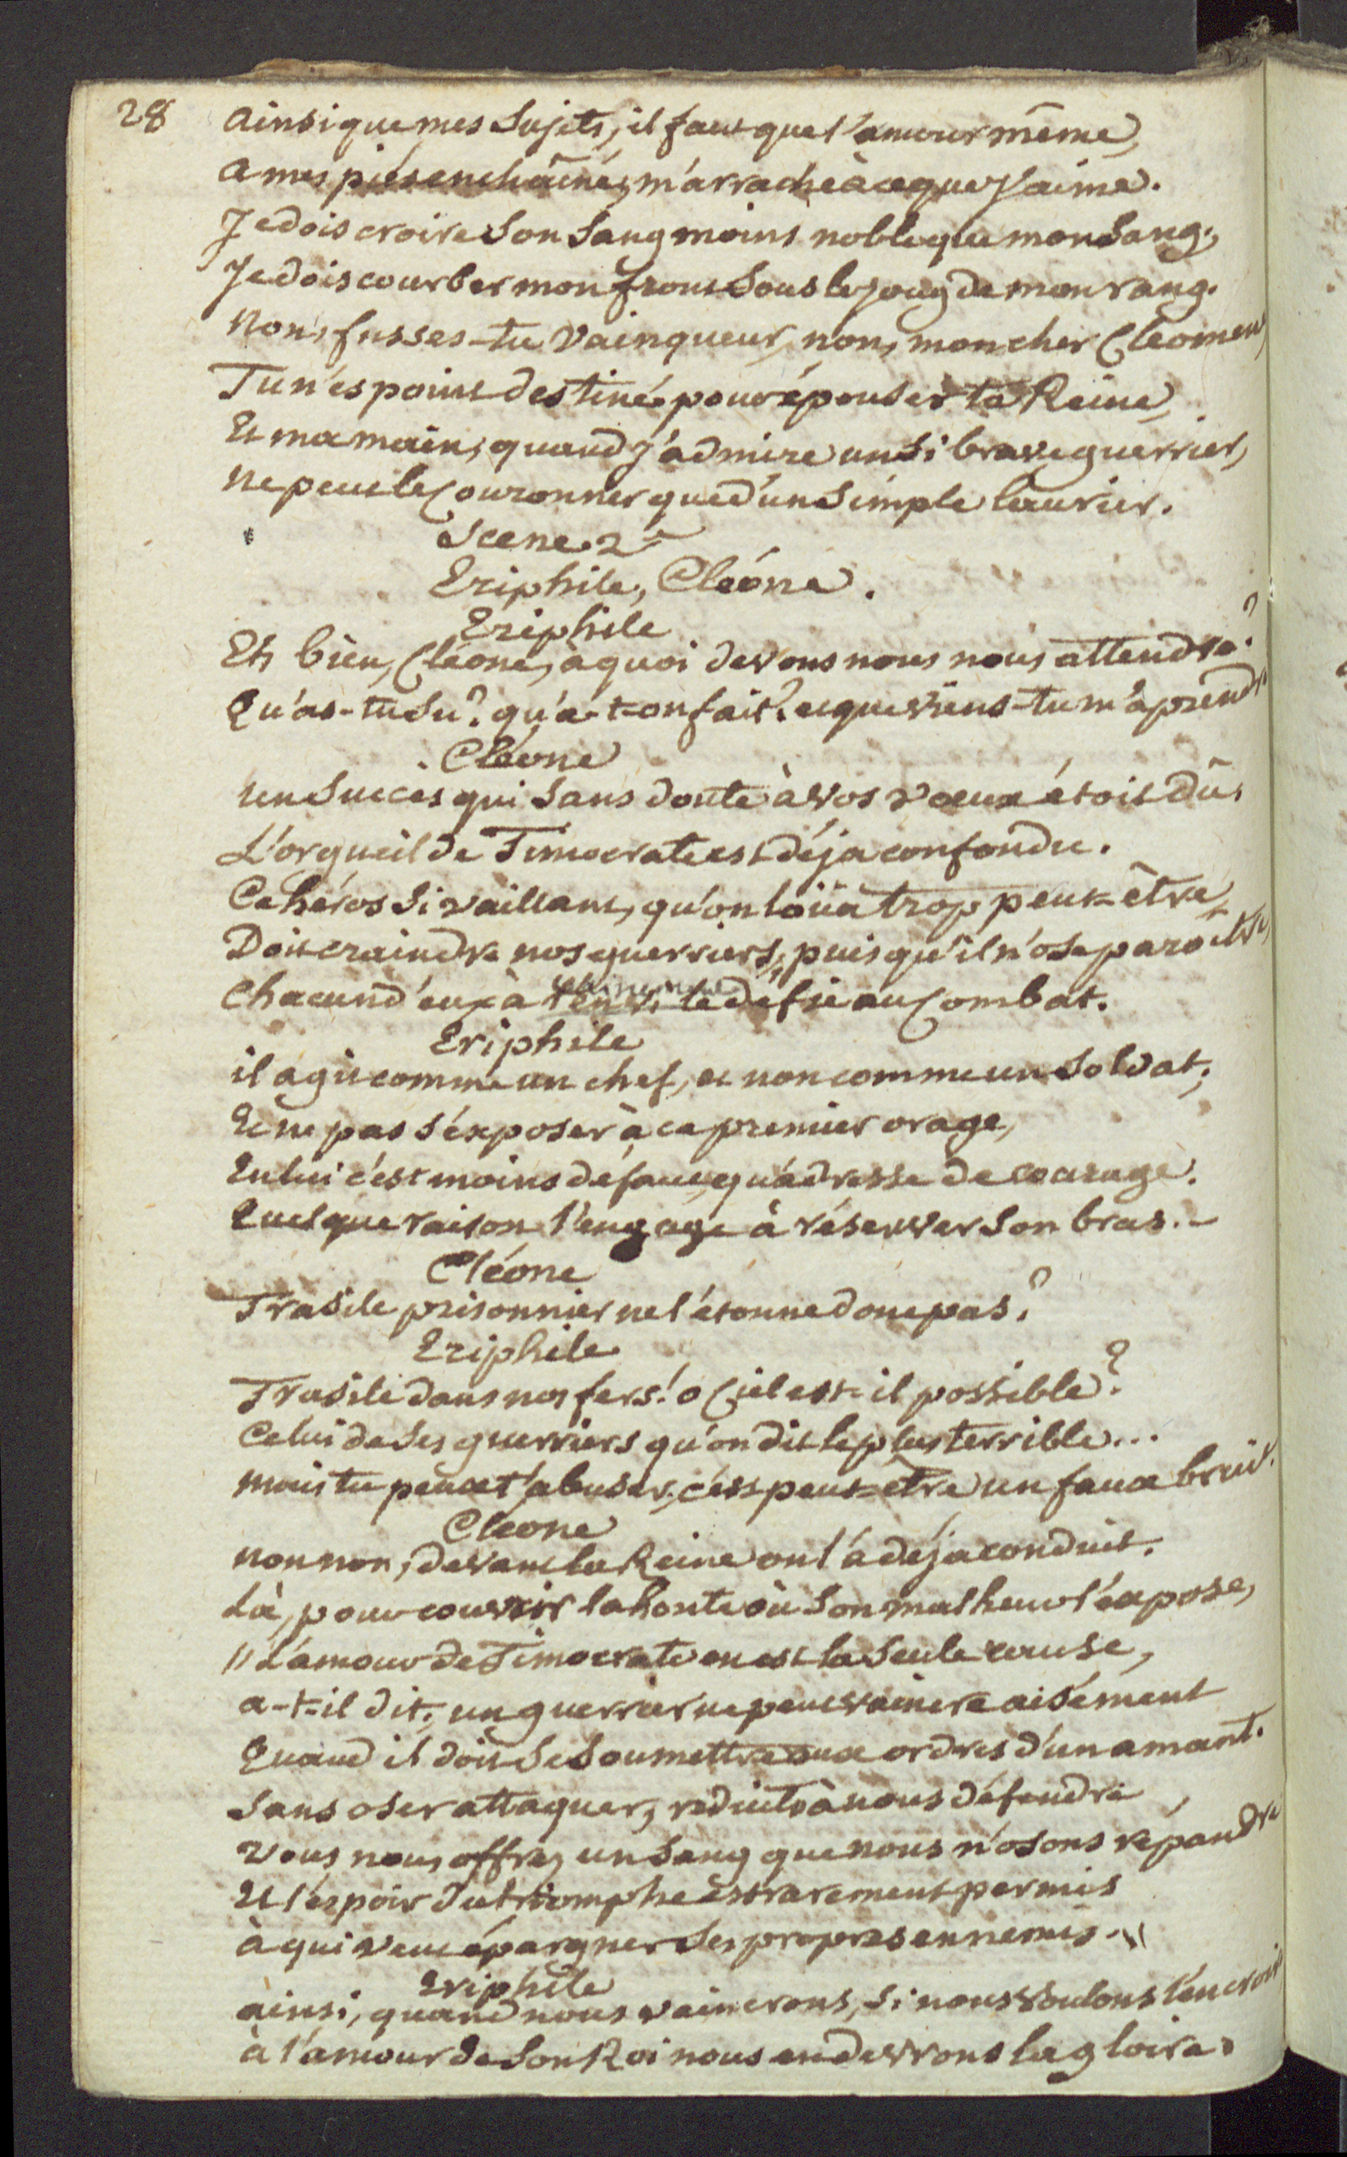 28
Ainsi que mes Sujets, il faut que l'amour même,
A mes piés enchainé, m'arrache à ce que J'aime.
Je dois croire Son Sang moins noble que mon Sang;
Je dois courber mon front Sous le joug de mon rang.
Non, fusses-tu Vainqueur, non, mon cher Cleomene,
Tu n'és point destiné pour épouser ta Reine,
Et ma main, quand j'admire un Si brave guerrier,
Ne peut le Couronner que d'un Simple laurier.
Scene 2e
Eriphile, Cléone.
Eriphile
Eh bien, Cléone, à quoi devons nous nous attendre?
Qu'as-tu Su? qu'a-t-on fait? et que viens-tu m'aprendre
Cléone
un Succès qui Sans doute à vos voeux étoit dû,
L'orgueil de Timocrate est déja confondu.
Ce héros Si vaillant, qu'on loüa trop peut-être,
Doit craindre nos guerriers, puisqu'il n'ose paroître,
vainement
Chacun d'eux à l'envi le défie au Combat.
Eriphile
il agit comme un chef, et non comme un Soldat;
Et ne pas s'exposer à ce premier orage,
En lui c'est moins défaut, qu'adresse de courage.
Quelque raison l'engage à réserver Son bras.
Cléone
Trasile prisonnier ne l'étonne donc pas?
Eriphile
Trasile dans nos fers! o Ciel est-il possible?
Celui de Ses guerriers qu'on dit le plus terrible...
mais tu peux t'abuser, c'est peut-être un faux bruit.
Cleone
non non, devant la Reine on l'a déja conduit.
Là, pour couvrir la honte où Son malheur l'expose,
"L'amour de Timocrate en est la Seule cause,
a-t-il dit; un guerrier ne peut vaincre aisément
Quand il doit Se Soumettre aux ordres d'un amant.
Sans oser attaquer, reduits à nous défendre
Vous nous offrez un Sang que nous n'osons répandre
Et l'espoir du triomphe Est rarement permis
à qui veut épargner Ses propres ennemis."
Eriphile
ainsi, quand nous vaincrons, Si nous voulons l'en croire
à l'amour de Son Roi nous en devrons la gloire.